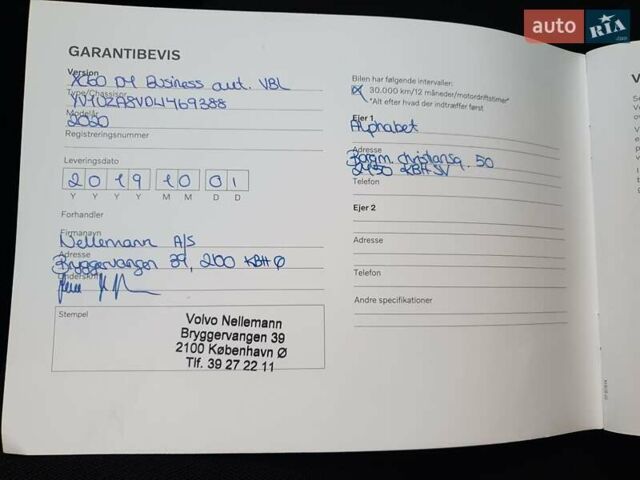 auto RIA.com
GARANTIBEVIS
Version
XC60 D4 Business aut. VBL
Type/Chassisnr
YV1UZA8VDL1469388
Modelår
2020
Registreringsnummer
Leveringsdato
2 0 1 9 1 0 0 1
Y Y Y Y M M D D
Forhandler
Firmanavn
Nellemann A/S
Adresse
Bryggervangen 39, 2100 KBH Ø
Underskrift
Stempel
Volvo Nellemann
Bryggervangen 39
2100 København Ø
Tlf. 39 27 22 11
Bilen har følgende intervaller:
30.000 km/12 måneder/motordriftstimer*
*Alt efter hvad der indtræffer først
Ejer 1
Alphabet
Adresse
Borgm. Christiansg. 50
2450 KBH SV
Telefon
Ejer 2
Adresse
Telefon
Andre specifikationer